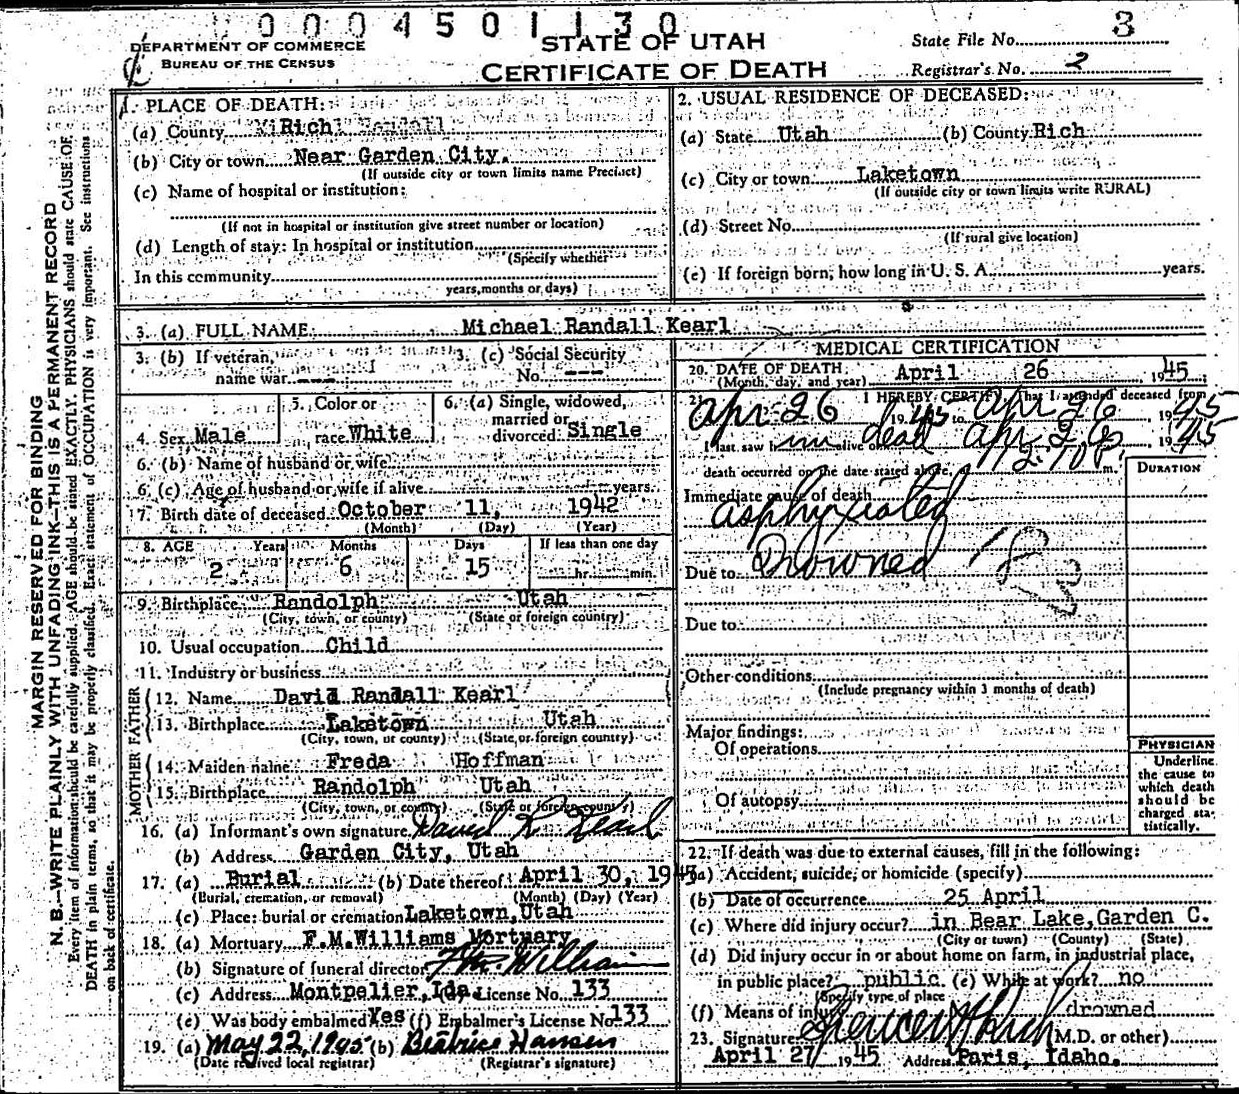 0004501130
DEPARTMENT OF COMMERCE
BUREAU OF THE CENSUS
STATE OF UTAH
CERTIFICATE OF DEATH
State File No. 3
Registrar's No. 2
MARGIN RESERVED FOR BINDING
N. B.—WRITE PLAINLY WITH UNFADING INK—THIS IS A PERMANENT RECORD
Every item of information should be carefully supplied. AGE should be stated EXACTLY. PHYSICIANS should state CAUSE OF
DEATH in plain terms, so that it may be properly classified. Exact statement of OCCUPATION is very important. See instructions
on back of certificate.
1. PLACE OF DEATH:
(a) County Rich
(b) City or town Near Garden City.
(If outside city or town limits name Precinct)
(c) Name of hospital or institution:
(If not in hospital or institution give street number or location)
(d) Length of stay: In hospital or institution
(Specify whether
In this community
years, months or days)
2. USUAL RESIDENCE OF DECEASED:
(a) State Utah (b) County Rich
(c) City or town Laketown
(If outside city or town limits write RURAL)
(d) Street No.
(If rural give location)
(e) If foreign born, how long in U. S. A. years.
3. (a) FULL NAME Michael Randall Kearl
3. (b) If veteran,
name war ---
3. (c) Social Security
No. ---
4. Sex Male
5. Color or
race White
6. (a) Single, widowed,
married or
divorced Single
6. (b) Name of husband or wife
6. (c) Age of husband or wife if alive years
7. Birth date of deceased October 11, 1942
(Month) (Day) (Year)
8. AGE Years Months Days If less than one day
2 6 15 hr. min.
9. Birthplace Randolph Utah
(City, town, or county) (State or foreign country)
10. Usual occupation Child
11. Industry or business
FATHER
12. Name David Randall Kearl
13. Birthplace Laketown Utah
(City, town, or county) (State or foreign country)
MOTHER
14. Maiden name Freda Hoffman
15. Birthplace Randolph Utah
(City, town, or county) (State or foreign country)
16. (a) Informant's own signature David R Kearl
(b) Address Garden City, Utah
17. (a) Burial (b) Date thereof April 30, 1945
(Burial, cremation, or removal) (Month) (Day) (Year)
(c) Place: burial or cremation Laketown, Utah
18. (a) Mortuary F.M.Williams Mortuary
(b) Signature of funeral director F.M. Williams
(c) Address Montpelier, Ida. License No. 133
(e) Was body embalmed Yes (f) Embalmer's License No. 133
19. (a) May 22, 1945 (b) Beatrice Hansen
(Date received local registrar) (Registrar's signature)
MEDICAL CERTIFICATION
20. DATE OF DEATH April 26 1945
(Month, day, and year)
21. I HEREBY CERTIFY That I attended deceased from
Apr 26 1945 to Apr 26 1945
I last saw him alive on dead Apr 26 1945
death occurred on the date stated above, at m.
DURATION
Immediate cause of death
Asphyxiated
Due to Drowned
Due to
Other conditions
(Include pregnancy within 3 months of death)
Major findings:
Of operations
Of autopsy
PHYSICIAN
Underline
the cause to
which death
should be
charged sta-
tistically.
22. If death was due to external causes, fill in the following:
(a) Accident, suicide, or homicide (specify)
(b) Date of occurrence 25 April
(c) Where did injury occur? in Bear Lake, Garden C.
(City or town) (County) (State)
(d) Did injury occur in or about home on farm, in industrial place,
in public place? public (e) While at work? no
(Specify type of place
(f) Means of injury drowned
23. Signature Spencer H Rich (M.D. or other)
April 27 1945 Address Paris, Idaho.